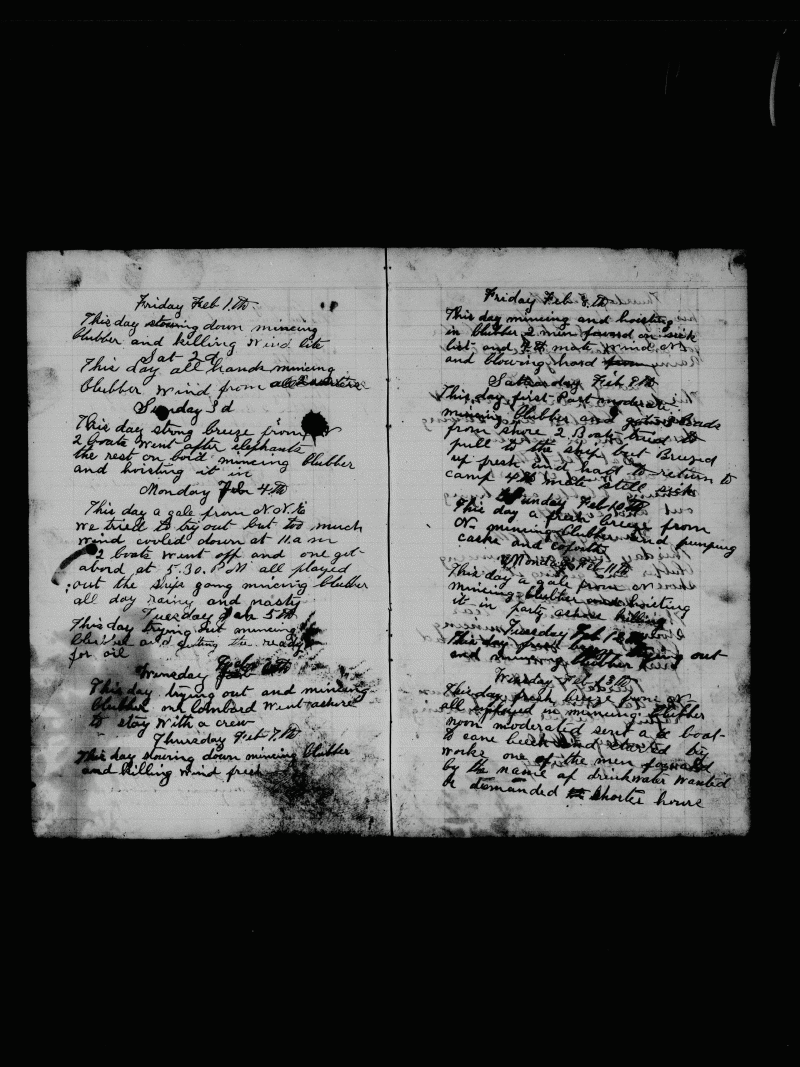 Friday Feb 1.th
This day stowing down mincing
blubber and killing wind lite
Sat 2 d
This day all hands mincing
blubber wind from
Sunday 3 d
This day strong breeze from
2 boats went after elephants
the rest on bord mincing blubber
and hoisting it in
Monday Feb 4th
This day a gale from N.N.E
we tried to try out but too much
wind cooled down at 11.a.m
2 boats went off and one got
abord at 5.30. P M all played
out the ships gang mincing blubber
all day rainy and nasty
Tuesday Feb 5th
This day trying out mincing
blubber and getting the ready
for oil
Wensday Feb 6th
This day trying out and mincing
blubber Mr Lombard went ashore
to stay with a crew
Thursday Feb 7.th
This day stowing down mincing blubber
and killing wind fresh
Friday Feb 8.th
This day mincing and hoisting
in blubber 2 men foward on sick
list and 4th mate wind N.E
and blowing hard
Satturday Feb 9th
This day first Part moderate
mincing blubber and 2 loads
from shore 2 Boats tried to
pull to the ship but Breezed
up fresh and had to return to
camp 4th mate still sick
Sunday Feb 10th
This day a fresh breeze from
N. mincing blubber and pumping
casks and
Monday Feb 11th
This day a gale from N
mincing blubber and hoisting
it in party ashore killing
Tuesday Feb 12
This day fresh out
and mincing blubber
Wensday Feb 13th
This day fresh breeze from N
all employed in mincing blubber
noon moderated sent a boat
to cane beech and stoved by
works one of the men foward
by the name of drinkwater wanted
or demanded shorter hours